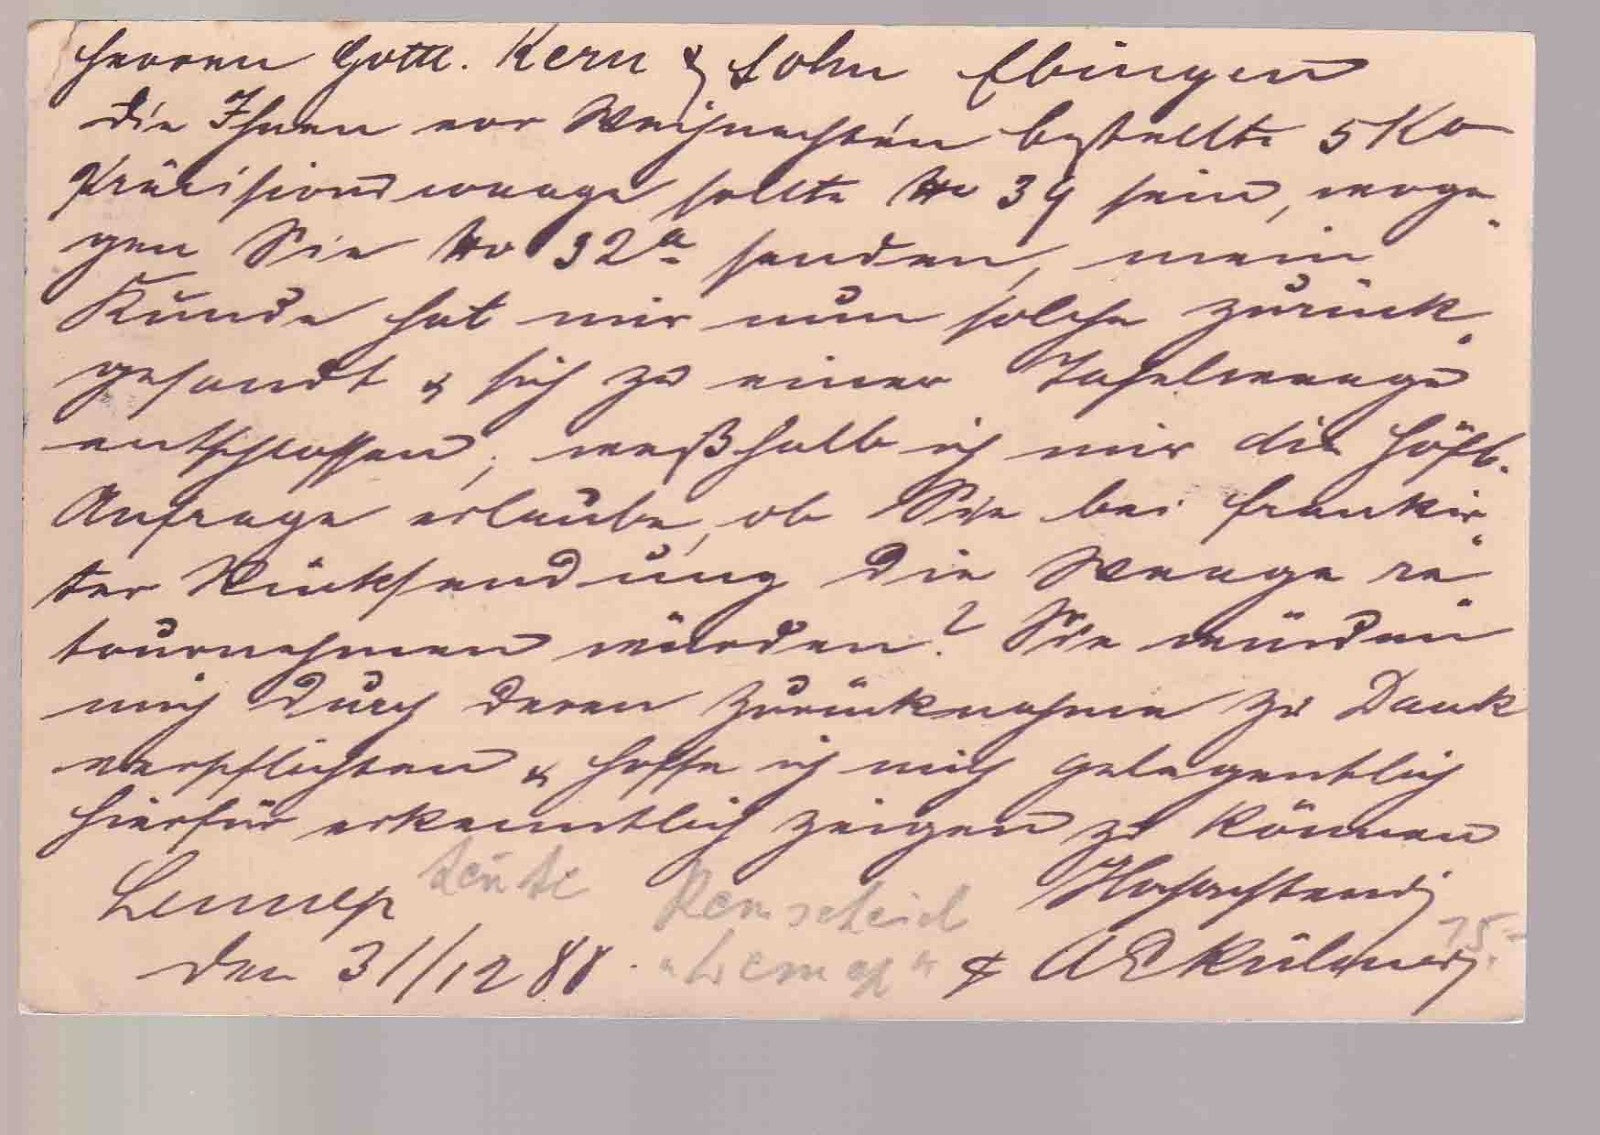 Herren Gottl. Kern & Sohn Ebingen
Die Ihnen vor Weihnachten bestellte 5 Ko
Präcisionswaage sollte No 34 sein, woge-
gen Sie No 32a sandten, mein
Kunde hat mir nun solche zurück-
gesandt & sich zu einer Tafelwaage
entschlossen, weßhalb ich mir die höfl.
Anfrage erlaube, ob Sie bei frankir-
ter Rücksendung die Waage re-
tournehmen würden? Sie würden
mich durch deren Zurücknahme zu Dank
verpflichten & hoffe ich mich gelegentlich
hierfür erkenntlich zeigen zu können
Hochachtend
Lennep heute Remscheid
den 31/12 88. "Lennep" 75.-